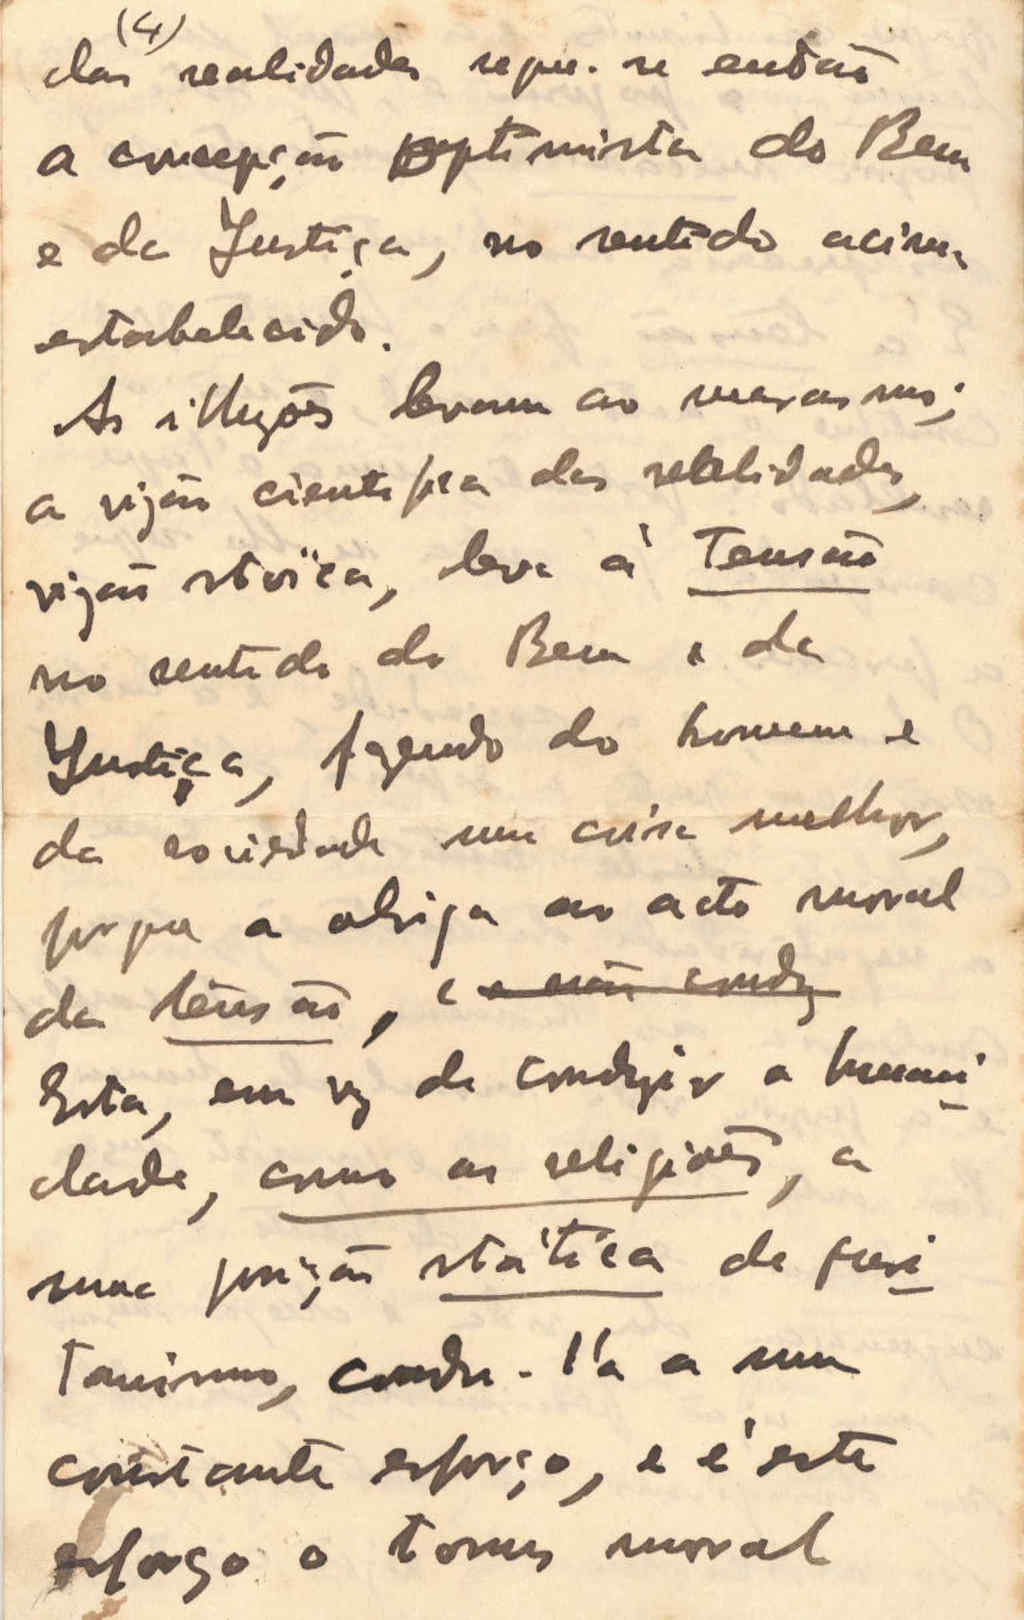 (4)
das realidades segue-se então
a concepção optimista do Bem
e da Justiça, no sentido acima
estabelecido.
As illuzões levam ao marasmo;
a vizão cientifica das realidades,
vizão stoïca, leva á Tensão
no sentido do Bem e da
Justiça, fazendo do homem e
da sociedade uma coisa melhor,
porque a obriga ao acto moral
da tensão, e e não conduz
Esta, em vez de conduzir a humani
dade, como as religiões, a
uma posição stática de puri
tanismo, condu-l'a a um
constante esforço, e é este
esforço o tonus moral